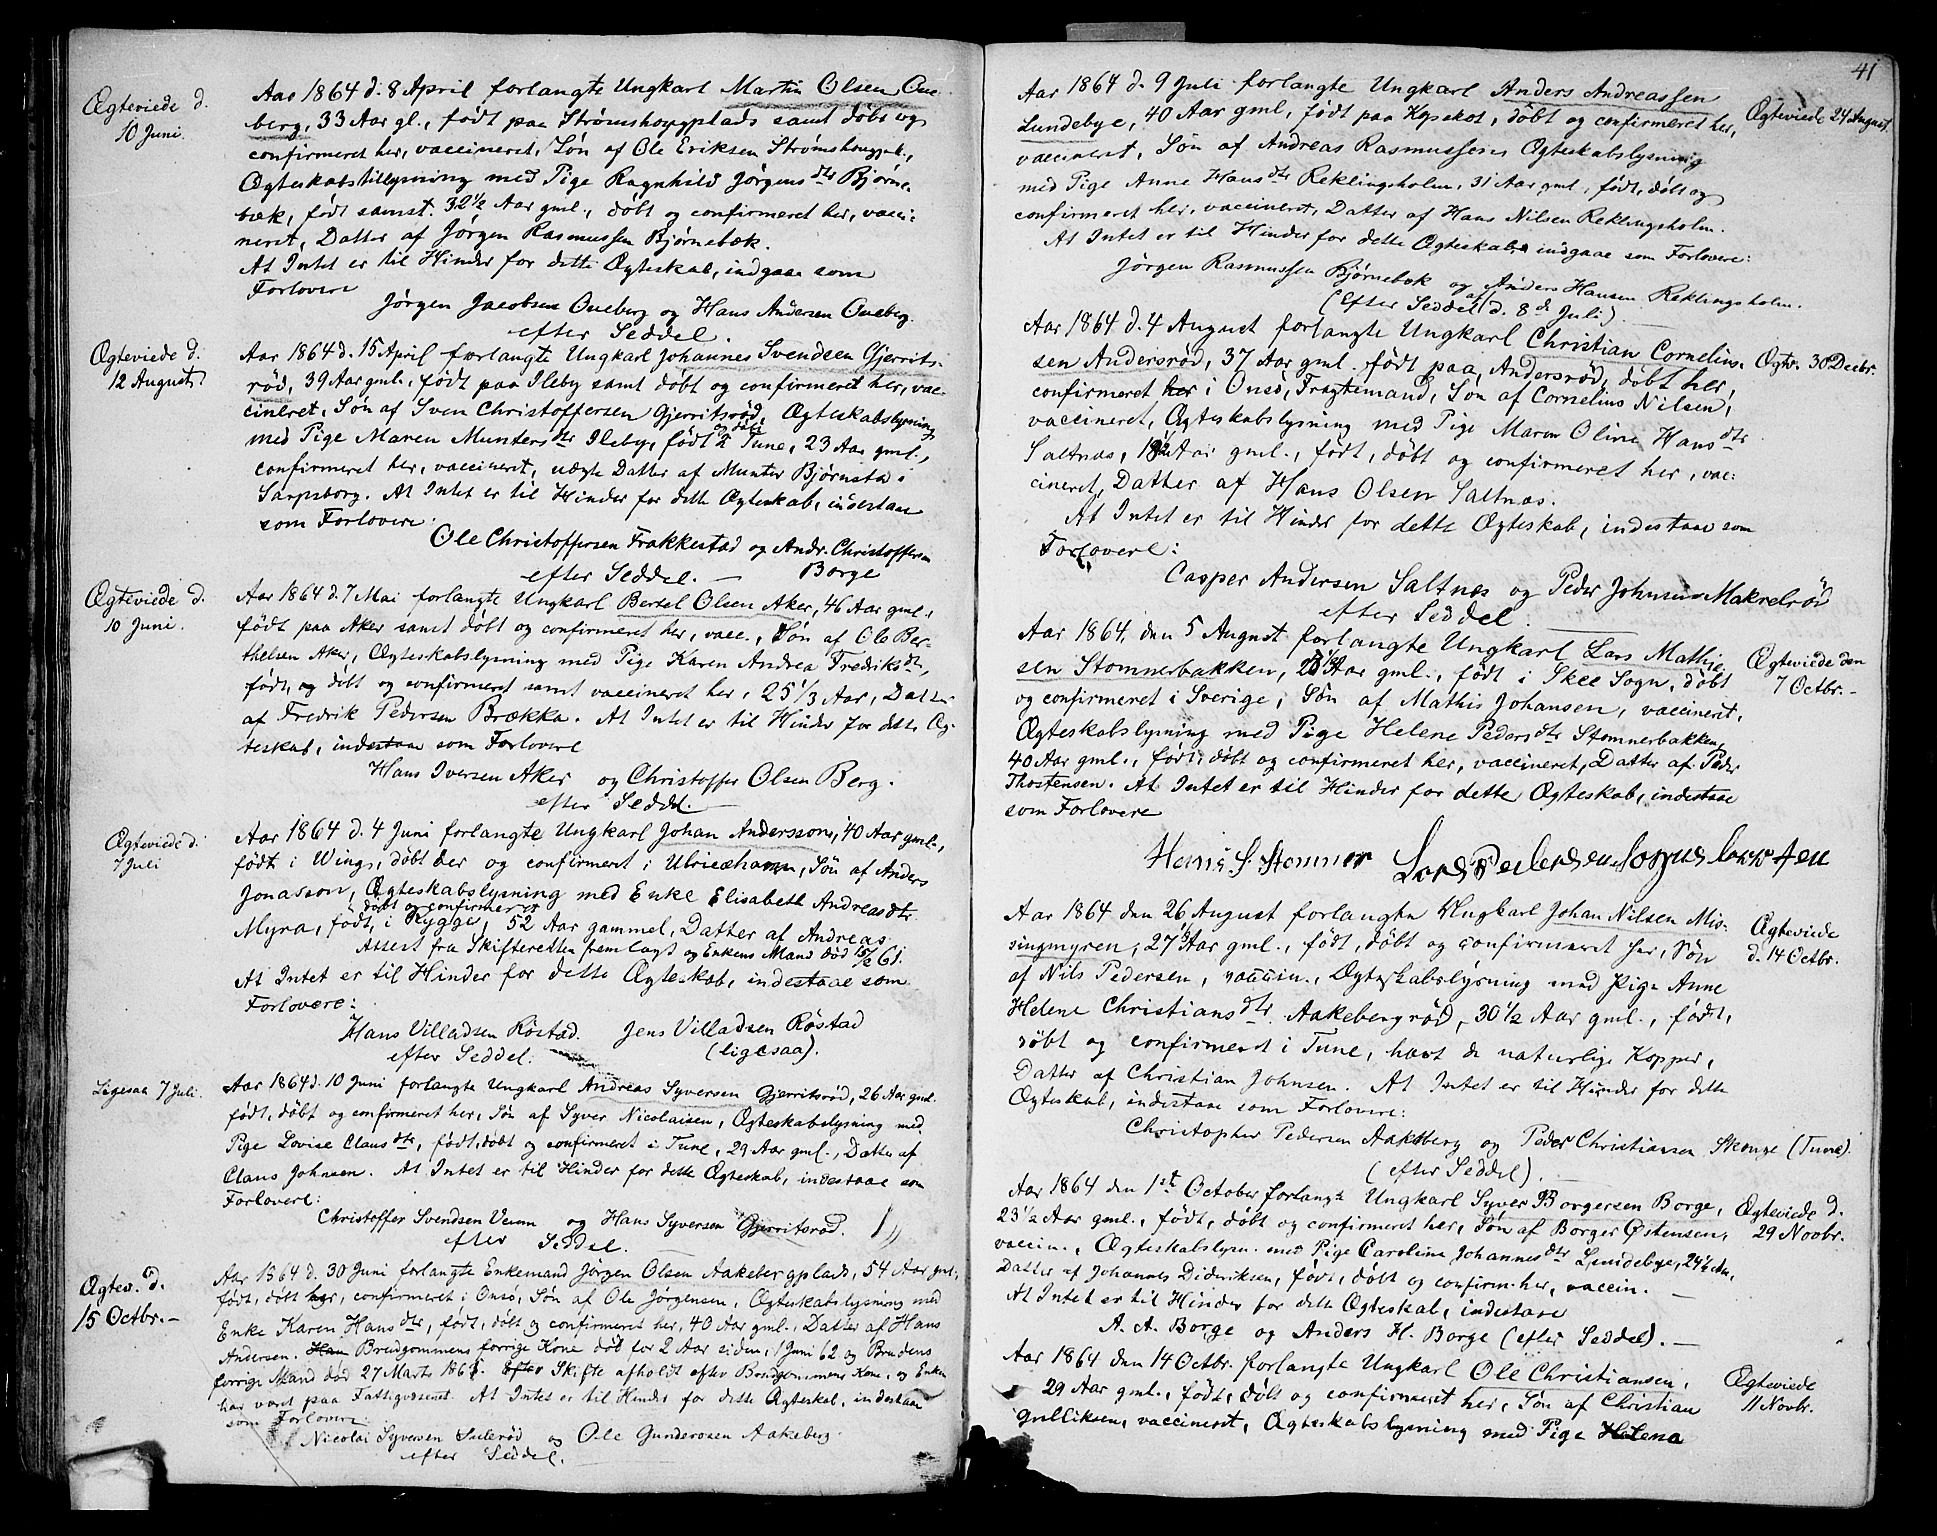 Ægteviede d.
10 Juni.
Aar 1864 d. 8 April forlangte Ungkarl Martin Olsen Oue-
berg, 33 Aar gl., født paa Strømshougplads samt døbt og
confirmeret her, vaccineret, Søn af Ole Eriksen Strømshougpl.,
Ægteskabstillysning med Pige Ragnhild Jørgensdtr Bjørne-
bæk, født samst. 32 1/2 Aar gml., døbt og confirmeret her, vacci-
neret, Datter af Jørgen Rasmussen Bjørnebæk.
At Intet er til Hinder for dette Ægteskab, indgaae som
Forlovere
Jørgen Jacobsen Oueberg og Hans Andersen Oueberg.
efter Seddel.
Ægteviede d.
12 August.
Aar 1864 d. 15 April forlangte Ungkarl Johannes Svendsen Gjerrits-
rød, 39 Aar gml., født paa Ileby samt døbt og confirmeret her, vac-
cineret, Søn af Sven Christoffersen Gjerritsrød, Ægteskabslysning
med Pige Maren Muntersdtr Ileby, født og døbt i Tune, 23 Aar gml.,
confirmeret her, vaccineret, uægte Datter af Munter Bjørnstad i
Sarpsborg. At Intet er til Hinder for dette Ægteskab, indestaae
som Forlovere:
Ole Christoffersen Frakkestad og Andr. Christoffersen
efter Seddel. — Borge
Ægteviede d.
10 Juni.
Aar 1864 d. 7 Mai forlangte Ungkarl Bertel Olsen Aker, 46 Aar gml.,
født paa Aker samt døbt og confirmeret her, vacc., Søn af Ole Ber-
thelsen Aker, Ægteskabslysning med Pige Karen Andrea Fredriksdtr,
født, og døbt og confirmeret samt vaccineret her, 25 1/3 Aar, Datter
af Fredrik Pedersen Brække. At Intet er til Hinder for dette Æg-
teskab, indestaae som Forlovere
Hans Iversen Aker og Christoffer Olsen Berg.
efter Seddel. —
Ægteviede d.
7 Juli
Aar 1864 d. 4 Juni forlangte Ungkarl Johan Anderssons, 40 Aar gml.,
født i Wing, døbt der og confirmeret i Ulricæhamn, Søn af Anders
Jonasson, Ægteskabslysning med Enke Elisabeth Andreasdtr
Myra, født, døbt og confirmeret i Rygge, 52 Aar gammel, Datter af Andreas
Attest fra Skifteretten fremlagt og Enkens Mand død 15/2 61.
At Intet er til Hinder for dette Ægteskab, indestaae som
Forlovere:
Hans Villadsen Røstad. Jens Villadsen Røstad
efter Seddel. (ligesaa).
Ligesaa 7 Juli.
Aar 1864 d. 10 Juni forlangte Ungkarl Andreas Syversen Gjerritsrød, 26 Aar gml.
født, døbt og confirmeret her, Søn af Syver Nicolaisen, Ægteskabslysning med
Pige Lovise Clausdtr, født, døbt og confirmeret i Tune, 29 Aar gml., Datter af
Claus Johnsen. At Intet er til Hinder for dette Ægteskab, indestaae som
Forlovere:
Christoffer Svendsen Veum og Hans Syversen Gjerritsrød.
efter Seddel.
Ægtev. d.
15 Octbr. —
Aar 1864 d. 30 Juni forlangte Enkemand Jørgen Olsen Aakebergplads, 54 Aar gml.,
født, døbt her, confirmeret i Onsø, Søn af Ole Jørgensen, Ægteskabslysning med
Enke Karen Hansdtr, født, døbt og confirmeret her, 40 Aar gml., Datter af Hans
Andersen. Han Brudgommens forrige Kone død for 2 Aar siden, 1 Juni 62 og Brudens
forrige Mand død 27 Marts 186 . Efter Skifte afholdt efter Brudgommens Kone, og Enken
har været paa Fattigvæsenet. At Intet er til Hinder for dette Ægteskab, indestaae
som Forlovere
Nicolai Syversen og Ole Gundersen Aakeberg.
efter Seddel.
41
Aar 1864 d. 9 Juli forlangte Ungkarl Anders Andreassen
Lundebye, 40 Aar gml, født paa Kopskot, døbt og confirmeret her,
vaccineret, Søn af Andreas Rasmussen Ægteskabslysning
med Pige Anne Hansdtr Reklingsholm, 31 Aar gml, født, døbt og
confirmeret her, vaccineret, Datter af Hans Nilsen Reklingsholm.
At Intet er til Hinder for dette Ægteskab, indgaae som Forlovere:
Jørgen Rasmussen Bjørnebæk og Anders Hansen Reklingsholm.
(efter Seddel af d. 8de Juli).
Ægteviede 24 August.
Aar 1864 d. 4 August forlangte Ungkarl Christian Cornelius-
sen Andersrød, 37 Aar gml. født paa Andersrød, døbt her,
confirmeret her i Onsø, Fragtemand, Søn af Cornelius Nilsen,
vaccineret, Ægteskabslysning med Pige Maren Oline Hansdtr
Saltnæs, Aar gml., født, døbt og confirmeret her, vac-
cineret, Datter af Hans Olsen Saltnæs.
At Intet er til Hinder for dette Ægteskab, indestaae som
Forlovere:
Casper Andersen Saltnæs og Peder Johnsen Makrelrød
efter Seddel.
Ægtv. 30 Decbr.
Aar 1864. den 5 August forlangte Ungkarl Lars Mathi-
sen Stomnerbakken, Aar gml., født i Skee Sogn, døbt
og confirmeret i Sverige, Søn af Mathis Johansen, vaccineret,
Ægteskabslysning med Pige Helene Pedersdtr Stomnerbakken
40 Aar gml., født, døbt og confirmeret her, vaccineret, Datter af Peder
Thostensen. At Intet er til Hinder for dette Ægteskab, indestaae
som Forlovere
Hans S. Stomner Lars Pedersen
Ægteviede den
7 Octbr. —
Aar 1864 den 26 August forlangte Ungkarl Johan Nilsen Mis-
singmyren, 27 Aar gml., født, døbt og confirmeret her, Søn
af Nils Pedersen, vaccin., Ægteskabslysning med Pige Anne
Helene Christiansdtr Aakebergrød, 30 1/2 Aar gml., født,
døbt og confirmeret i Tune, havt de naturlige Kopper,
Datter af Christian Johnsen. At Intet er til Hinder for dette
Ægteskab, indestaae som Forlovere:
Christopher Pedersen Aakeberg og Peder Christiansen Skouge (Tune).
(efter Seddel).
Ægteviede
d. 14 Octbr.
Aar 1864 den 1st October forlangte Ungkarl Syver Borgersen Borge,
23 1/2 Aar gml., født, døbt og confirmeret her, Søn af Borger Østensen,
vaccin., Ægteskabslysn. med Pige Caroline Johannesdtr Lundebye, 24 1/2 Aar,
Datter af Johannes Dideriksen, født, døbt og confirm. her, vaccin.
At Intet er til Hinder for dette Ægteskab, indestaae
A. A. Borge og Anders H. Borge (efter Seddel). —
Ægteviede d.
29 Novbr.
Aar 1864 den 14 Octbr. forlangte Ungkarl Ole Christiansen,
29 Aar gml., født, døbt og confirmeret her, Søn af Christian
Gulliksen, vaccineret, Ægteskabslysning med Pige Helena
Ægteviede
11 Novbr.